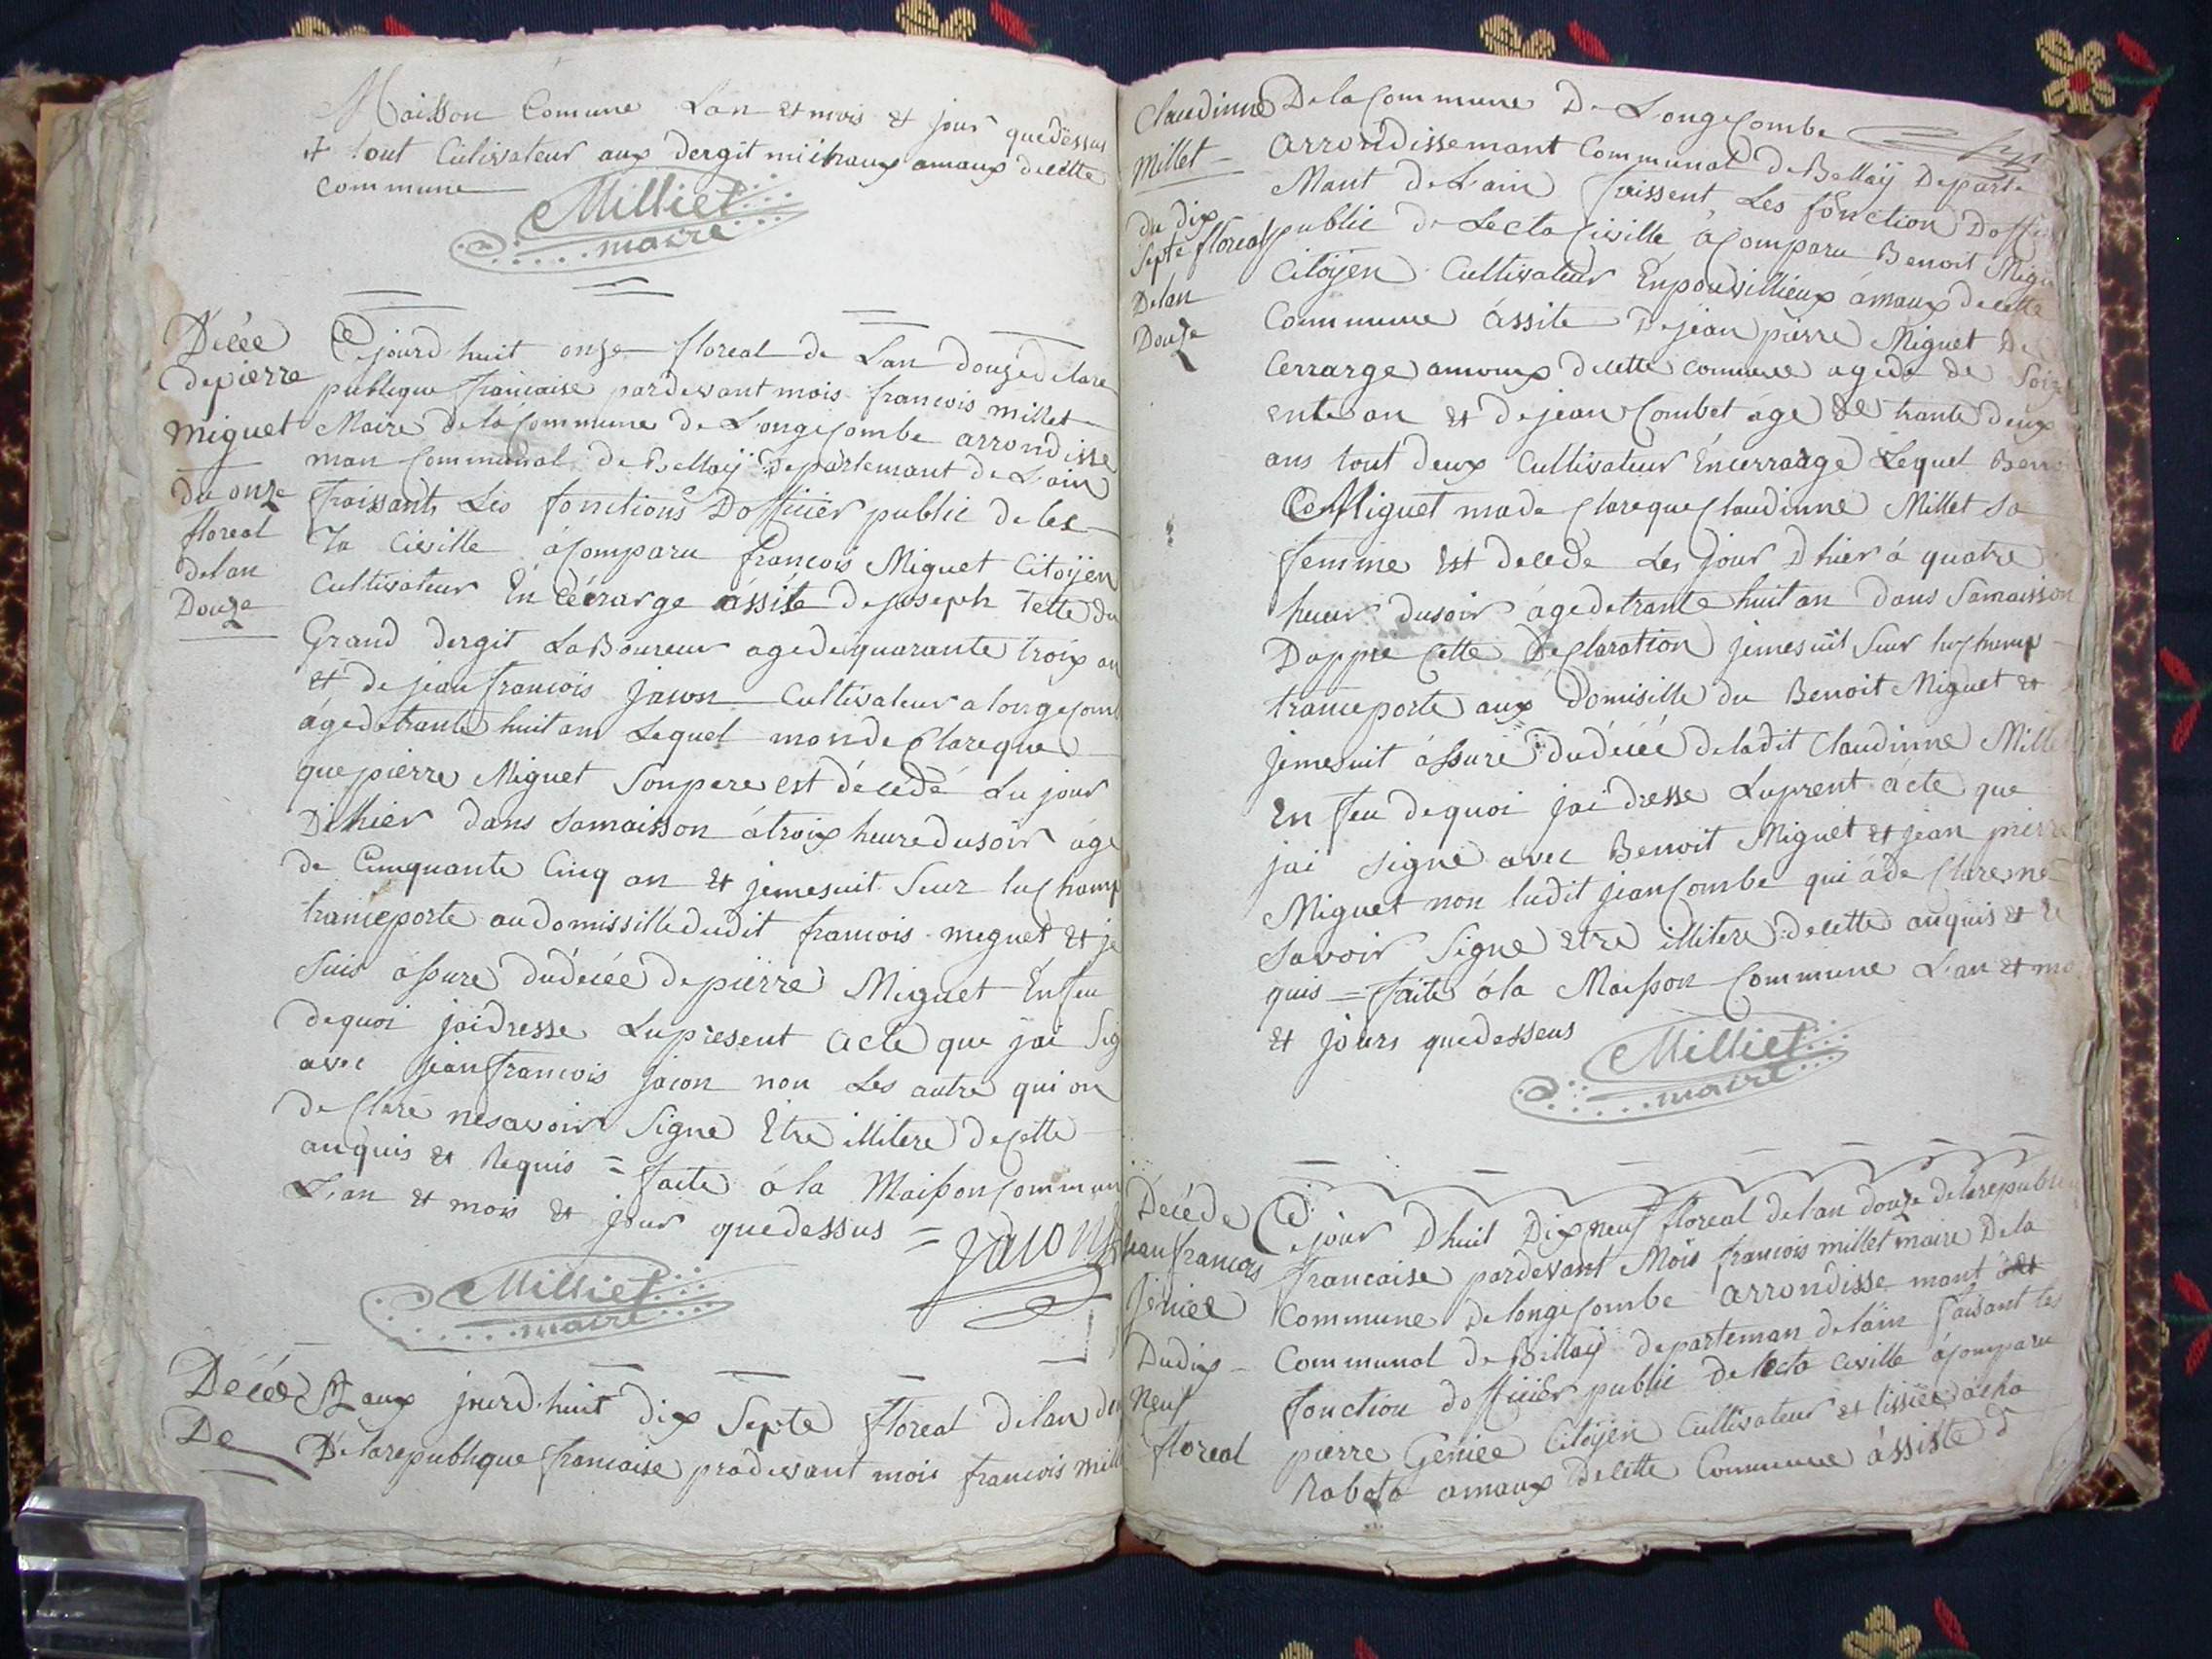 Maisson Comune Lan et mois et jour quedessus
+ tout Culivateur aux dergit michaux amaux decette
commune
Milliet
maire
Décée
depierre
Miguet
du onze
floreal
delan
Douze
Cejourd'huit onze floreal de Lan douze delare
publique francaise pardevant mois francois millet
Maire delacommune de Longecombe arrondisse
man Communal de Bellaÿ departemant de L'ain
faissants Les fonctions Dofficier public deles
ta Civille acomparu francois Miguet Citoÿen
Cultivateur En Cérarge assisté dejoseph Tette du
Grand dergit LaBoureur agedequarante troix an
et de jeanfrancois jacon Cultivateur a longecomb
agedetrante huit an Lequel mondeclareque
quepierre Miguet Sonpere est décedé Lu jour
Dihier dans Samaisson a troix heuredusoir age
de Cinquante Cinq an et jemesuit Seur luchamp
tranceporte audomissilledudit francois meguet et je
Suis assure dudécée depierre Miguet Enfeu
dequoi jaidresse Lupresent acte que jai Sig
avec jeanfrancois jacon non Les autre qui on
declaré nesavoir Signe Etre illitere decette
anquis et Requis = faite a la Maisoncommun
L'an et mois et jour quedessus = jacon
Milliet
maire
Décée
De
aux jourd'huit dix Septe floreal delan dou
Delarepublique francaise pradevant mois francois mill
Claudinne
Millet
du dix
Septe floreal
Delan
Douze
DelaCommune De Longecombe
arrondissemant Communal de Bellaÿ Departe
Mant deLain faissent Les fonction Doffici
public de Lecta Civille acomparu Benoit Migu
Citoÿen Cultivateur Enpouvillieux amaux decette
Commune assite Dejean pierre Miguet De
Cerrarge amaux decette commune agede de Soix
ente an et dejean Combet age de trante deux
ans tout deux Cultivateur Encerrarge Lequel Benoi
Miguet madeclareque Claudinne Millet Sa
femme Est decedé Les jour Dhier à quatre
heur dusoir agedetrante huit an dans Samaisson
Dappre Cette Declaration jemesuit Seur luchamp
tranceporte aux Domisille du Benoit Miguet et
jemesuit assure dudécée deladit Claudinne Mille
En feu dequoi jai dresse Luprent acte que
jai Signe avec Benoit Miguet et jean pierre
Miguet non ludit jeanCombe qui adeClare ne
Savoir Signe Etre illitere decette anquis et Re
quis = faite a la Maison Commune L'an et mo
et jours quedessus
Milliet
maire
Décéde
jean francois
Jeniee
Dudix
Neuf
floreal
Ce jour Dhuit Dixneuf floreal delan douze delarepubli
francaise pardevant Mois francois millet maire Dela
Commune Delongecombe arrondisse mant
Communal de Billaÿ departeman delain faisant les
fonction dofficiér public delecta civille acomparu
pierre Geniee Citoÿen Cultivateur et
Rabata amaux decette Commune assiste d